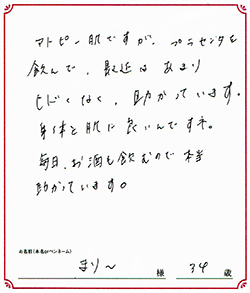 アトピー肌ですが、プラセンタを
飲んで、最近はあまり
ヒドくなく、助かっています。
身体と肌に良いんですネ。
毎日、お酒も飲むので本当
助かっています。
お名前(本名orペンネーム)
まり〜 様 34 歳